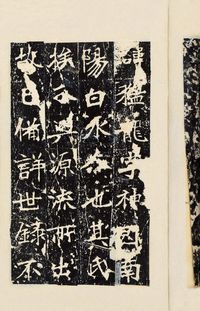 諱猛龍字神冏南
陽白水人也其氏
族分興源流所出
故已備詳世錄不